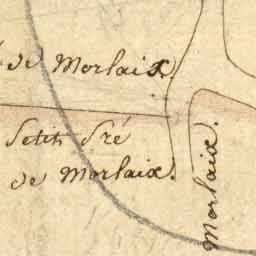 de Morlaix.
Petit Pré
de Morlaix.
Morlaix.